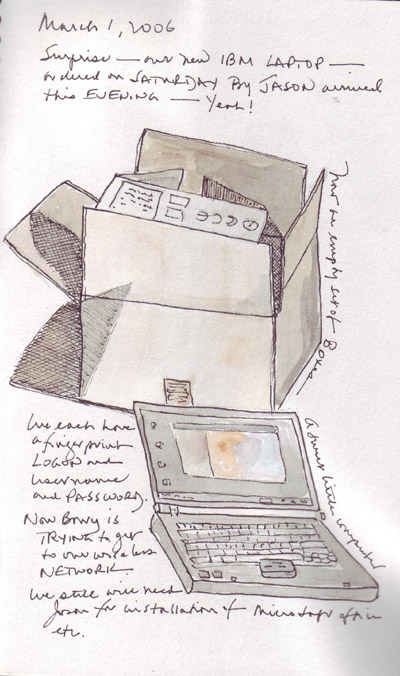 March 1, 2006
Surprise — our new IBM LAPTOP —
ordered on SATURDAY By JASON arrived
this EVENING — Yeah!
an empty set of Boxes
a sweet little computer
We each have
a fingerprint
LOGON and
username
and PASSWORD.
Now is
TRYING to get
to our wireless
NETWORK
We still will need
Jason for installation of Microsoft office
etc.